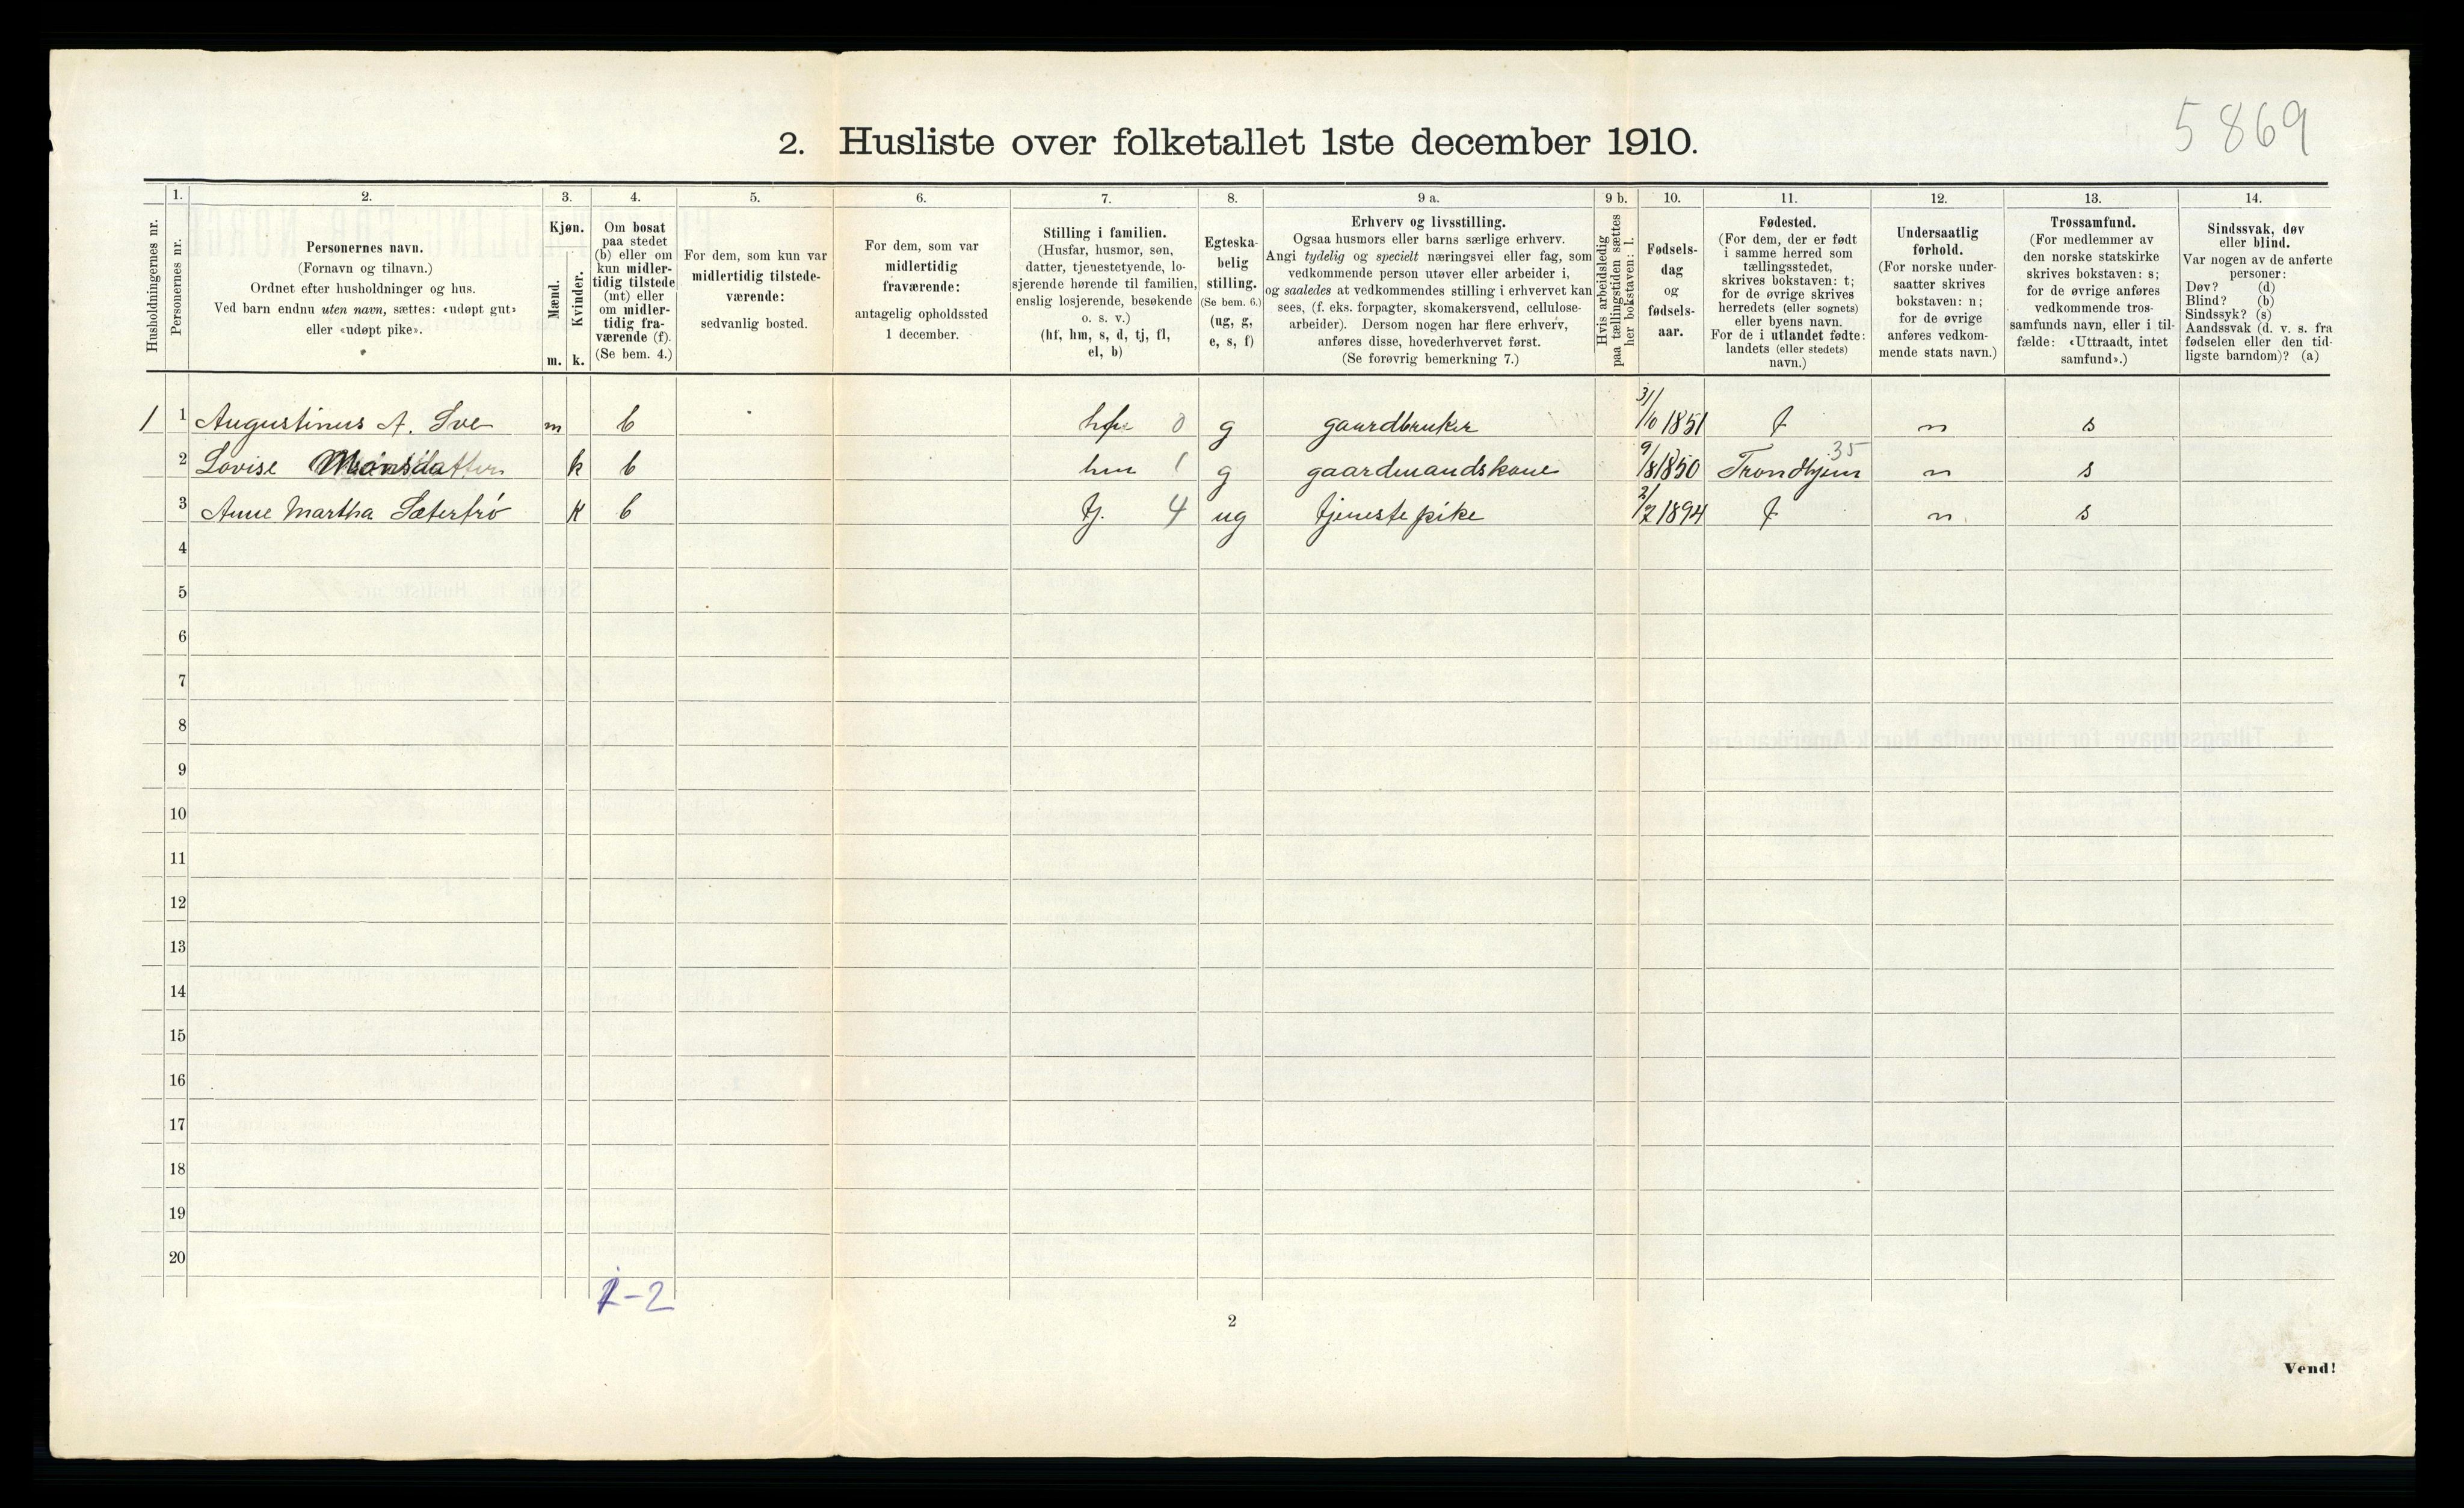 5869
2. Husliste over folketallet 1ste december 1910.
Husholdningernes nr.
1.
Personernes nr.
2.
Personernes navn.
(Fornavn og tilnavn.)
Ordnet efter husholdninger og hus.
Ved barn endnu uten navn, sættes: «udøpt gut»
eller «udøpt pike».
3.
Kjøn.
Mænd.
Kvinder.
m. k.
4.
Om bosat
paa stedet
(b) eller om
kun midler-
tidig tilstede
(mt) eller
om midler-
tidig fra-
værende (f).
(Se bem. 4.)
5.
For dem, som kun var
midlertidig tilstede-
værende:
sedvanlig bosted.
6.
For dem, som var
midlertidig
fraværende:
antagelig opholdssted
1 december.
7.
Stilling i familien.
(Husfar, husmor, søn,
datter, tjenestetyende, lo-
sjerende hørende til familien,
enslig losjerende, besøkende
o. s. v.)
(hf, hm, s, d, tj, fl,
el, b)
8.
Egteska-
belig
stilling.
(Se bem. 6.)
(ug, g,
e, s, f)
9 a.
Erhverv og livsstilling.
Ogsaa husmors eller barns særlige erhverv.
Angi tydelig og specielt næringsvei eller fag, som
vedkommende person utøver eller arbeider i,
og saaledes at vedkommendes stilling i erhvervet kan
sees, (f. eks. forpagter, skomakersvend, cellulose-
arbeider). Dersom nogen har flere erhverv,
anføres disse, hovederhvervet først.
(Se forøvrig bemerkning 7.)
9 b.
Hvis arbeidsledig
paa tællingstiden sættes
her bokstaven: l.
10.
Fødsels-
dag
og
fødsels-
aar.
11.
Fødested.
(For dem, der er født
i samme herred som
tællingsstedet,
skrives bokstaven: t;
for de øvrige skrives
herredets (eller sognets)
eller byens navn.
For de i utlandet fødte:
landets (eller stedets)
navn.)
12.
Undersaatlig
forhold.
(For norske under-
saatter skrives
bokstaven: n;
for de øvrige
anføres vedkom-
mende stats navn.)
13.
Trossamfund.
(For medlemmer av
den norske statskirke
skrives bokstaven: s;
for de øvrige anføres
vedkommende tros-
samfunds navn, eller i til-
fælde: «Uttraadt, intet
samfund».)
14.
Sindssvak, døv
eller blind.
Var nogen av de anførte
personer:
Døv? (d)
Blind? (b)
Sindssyk? (s)
Aandssvak (d. v. s. fra
fødselen eller den tid-
ligste barndom)? (a)
1 1 Augustinus A. Sve m b hf 0 g gaardbruker 31/10 1851 t n s
2 Lovise Monsdatter k b hm 1 g gaardmandskone 9/8 1850 Trondhjem 35 n s
3 Anne Martha Sæterbø k b tj. 4 ug tjenestepike 2/2 1894 t n s
4
5
6
7
8
9
10
11
12
13
14
15
16
17
18
19
20
1-2
2
Vend!